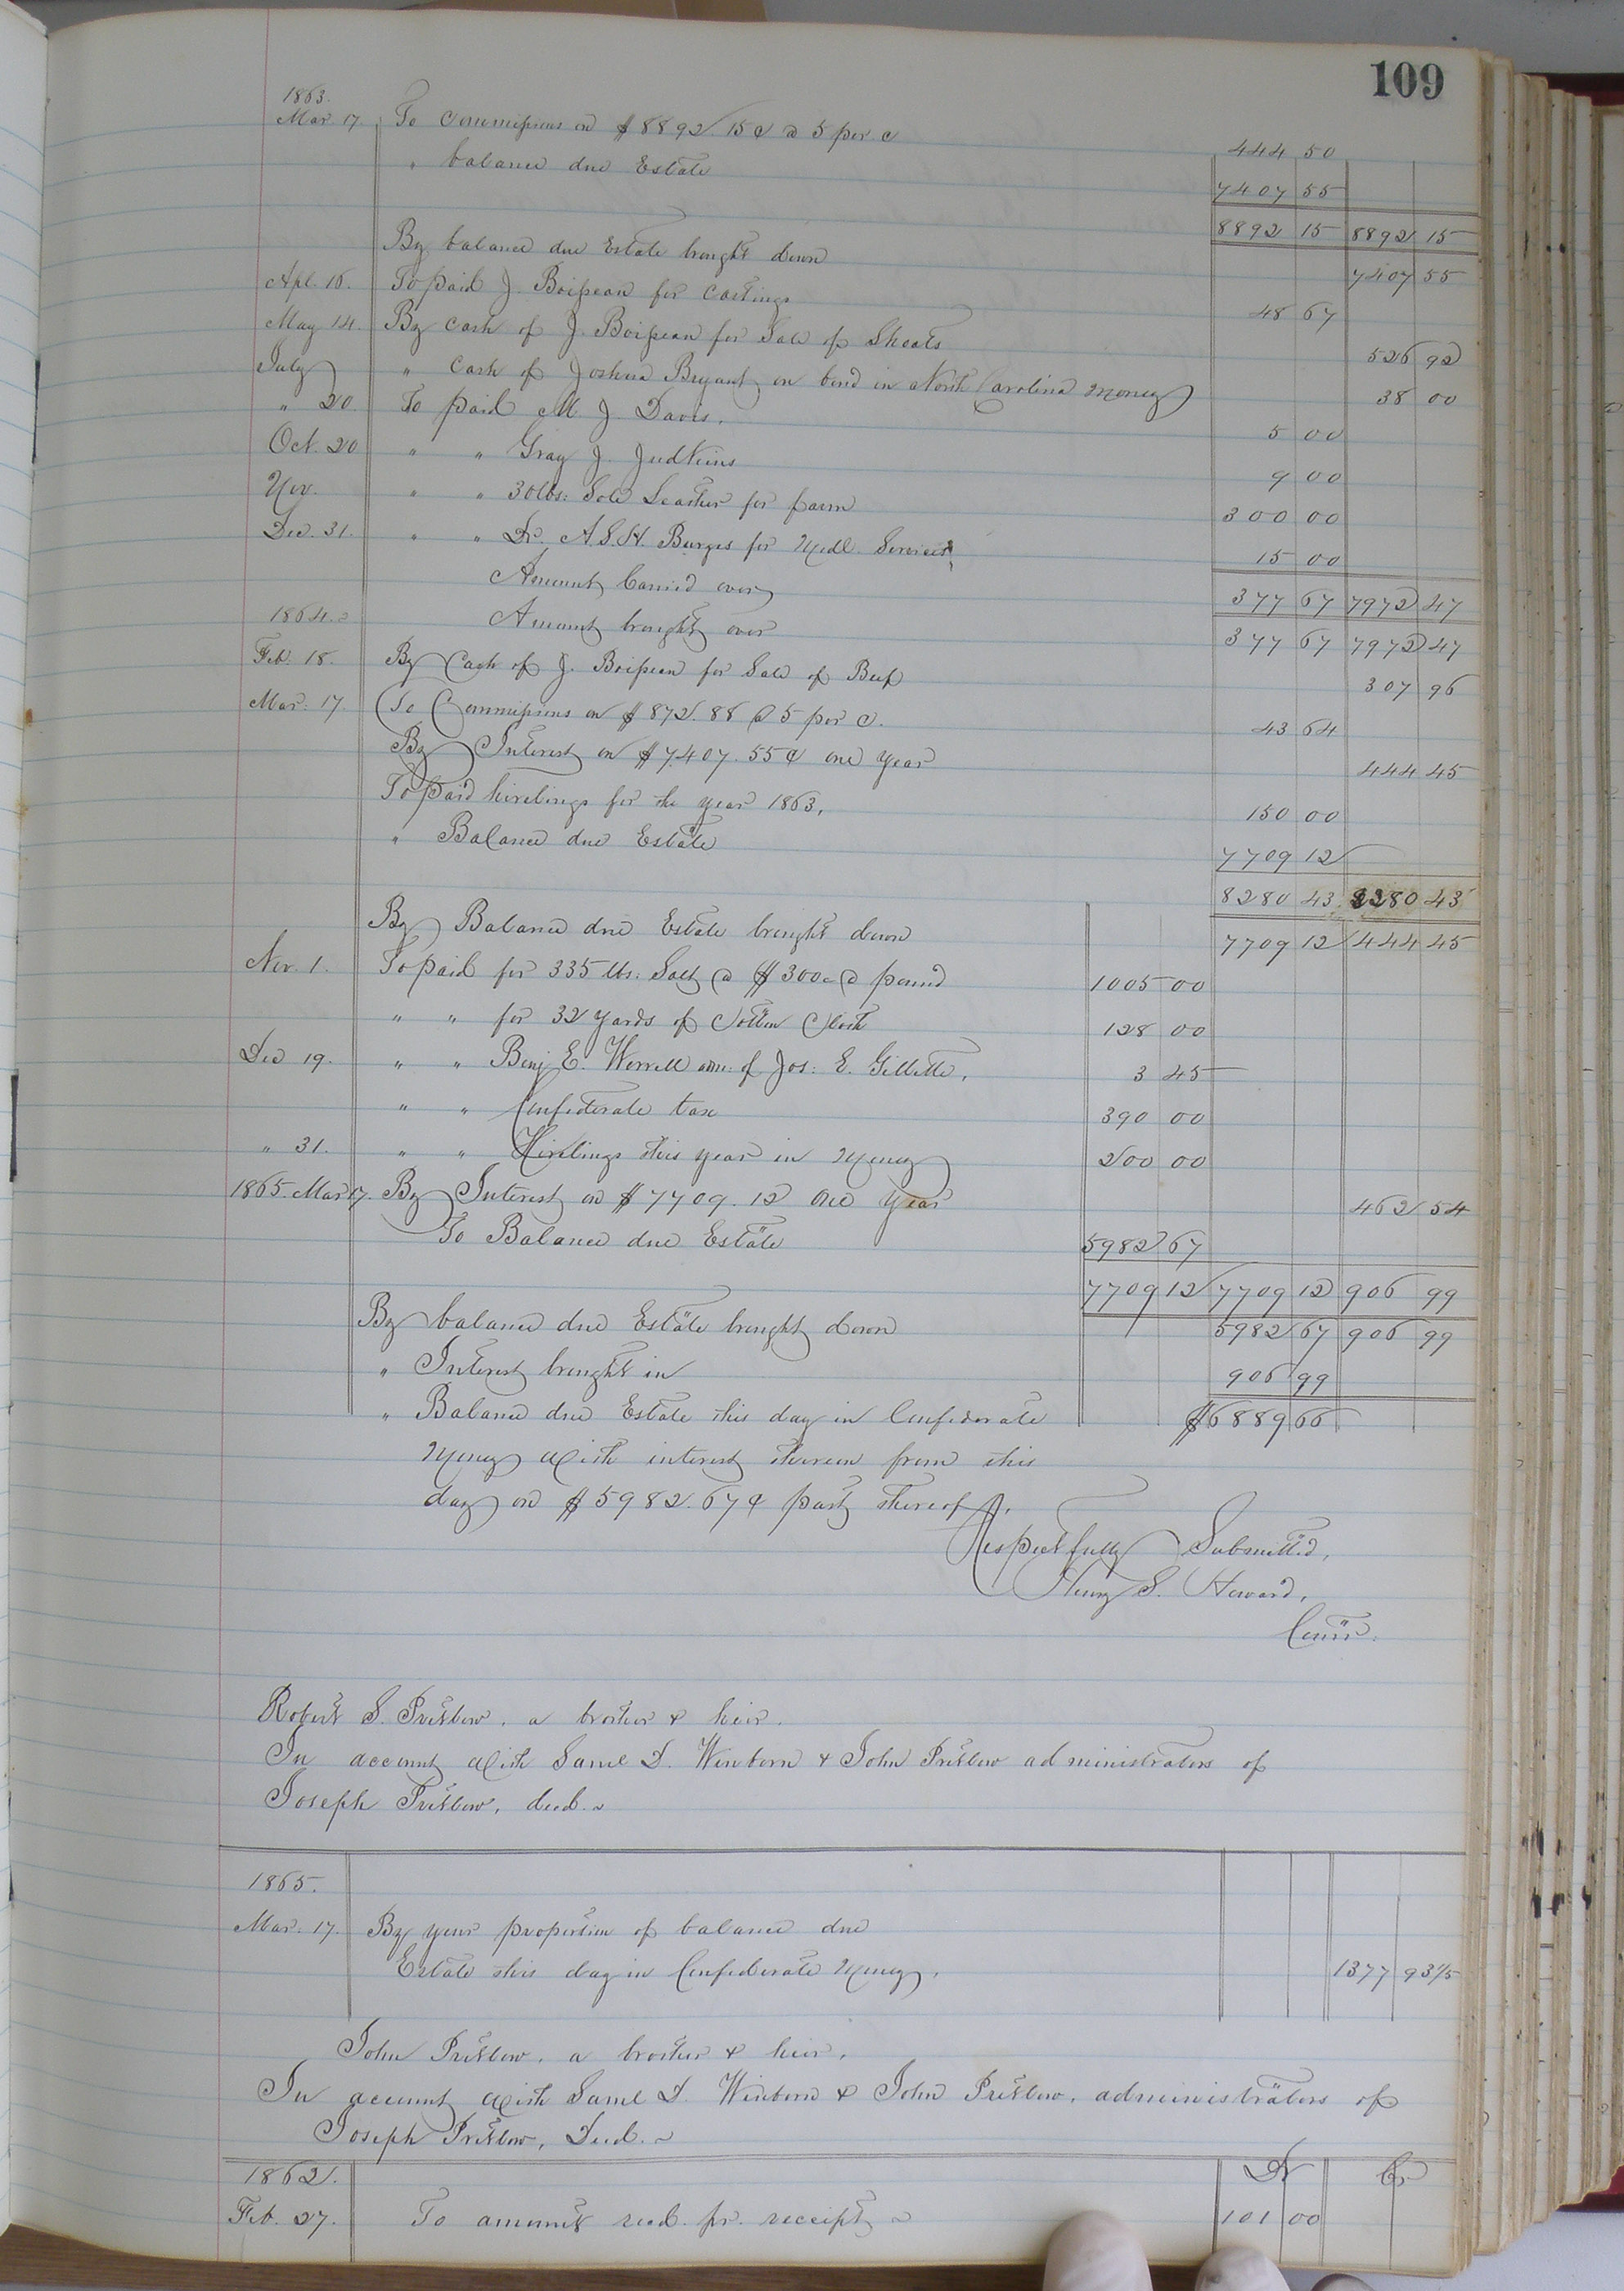 109
1863.
Mar. 17. To Commissions on $8892 15¢ @ 5 per c 444 50
" balance due Estate 7407 55
8892 15 8892 15
By balance due Estate brought down 7407 55
Apl. 16. To paid J. Boissean for Castings 48 67
May 14. By Cash of J. Boissean for Sale of Shoats 526 92
July " Cash of Joshua Bryant on bond in North Carolina money 38 00
" 20. To paid M. J. Davis. 5 00
Oct. 20 " " Gray J. Judkins 9 00
Nov. " " 30 lbs: Sole Leather for farm 300 00
Dec. 31. " " Dr. A.S.H. Burges for Medl. Services, 15 00
Amount Carried over 377 67 7972 47
1864. Amount brought over 377 67 7972 47
Feb. 18. By Cash of J. Boissean for Sale of Beef 307 96
Mar. 17. To Commissions on $872.88 @ 5 per c. 43 64
By Interest on $7407.55¢ one year 444 45
To paid hirelings for the year 1863. 150 00
" Balance due Estate 7709 12
8280 43 8280 43
By Balance due Estate brought down 7709 12 444 45
Nov. 1. To paid for 335 lbs: Salt @ $3 00c @ pound 1005 00
" " for 32 yards of Cotton Cloth 128 00
Dec 19. " " Benj E. Worrell adm: of Jos: E. Gillette, 3 45
" " Confederate tax 390 00
" 31. " " Hirelings this year in Money 200 00
1865. Mar 17. By Interest on $7709.12 one year 462 54
To Balance due Estate 5982 67
7709 12 7709 12 906 99
By balance due Estate brought down 5982 67 906 99
" Interest brought in 906 99
" Balance due Estate this day in Confederate $6889 66
Money with interest thereon from this
day on $5982.67¢ part thereof.
Respectfully Submitted,
Henry S. Howard,
Comr.
Robert S. Pretlow. a brother & heir.
In account with Saml D. Winborn & John Pretlow administrators of
Joseph Pretlow, decd.
1865.
Mar. 17. By your proportion of balance due
Estate this day in Confederate Money. 1377 93 1/5
John Pretlow. a brother & heir.
In account with Saml D. Winborn & John Pretlow. administrators of
Joseph Pretlow, Decd.
1862. Dr Cr
Feb. 27. To amount recd. pr. receipt 101 00